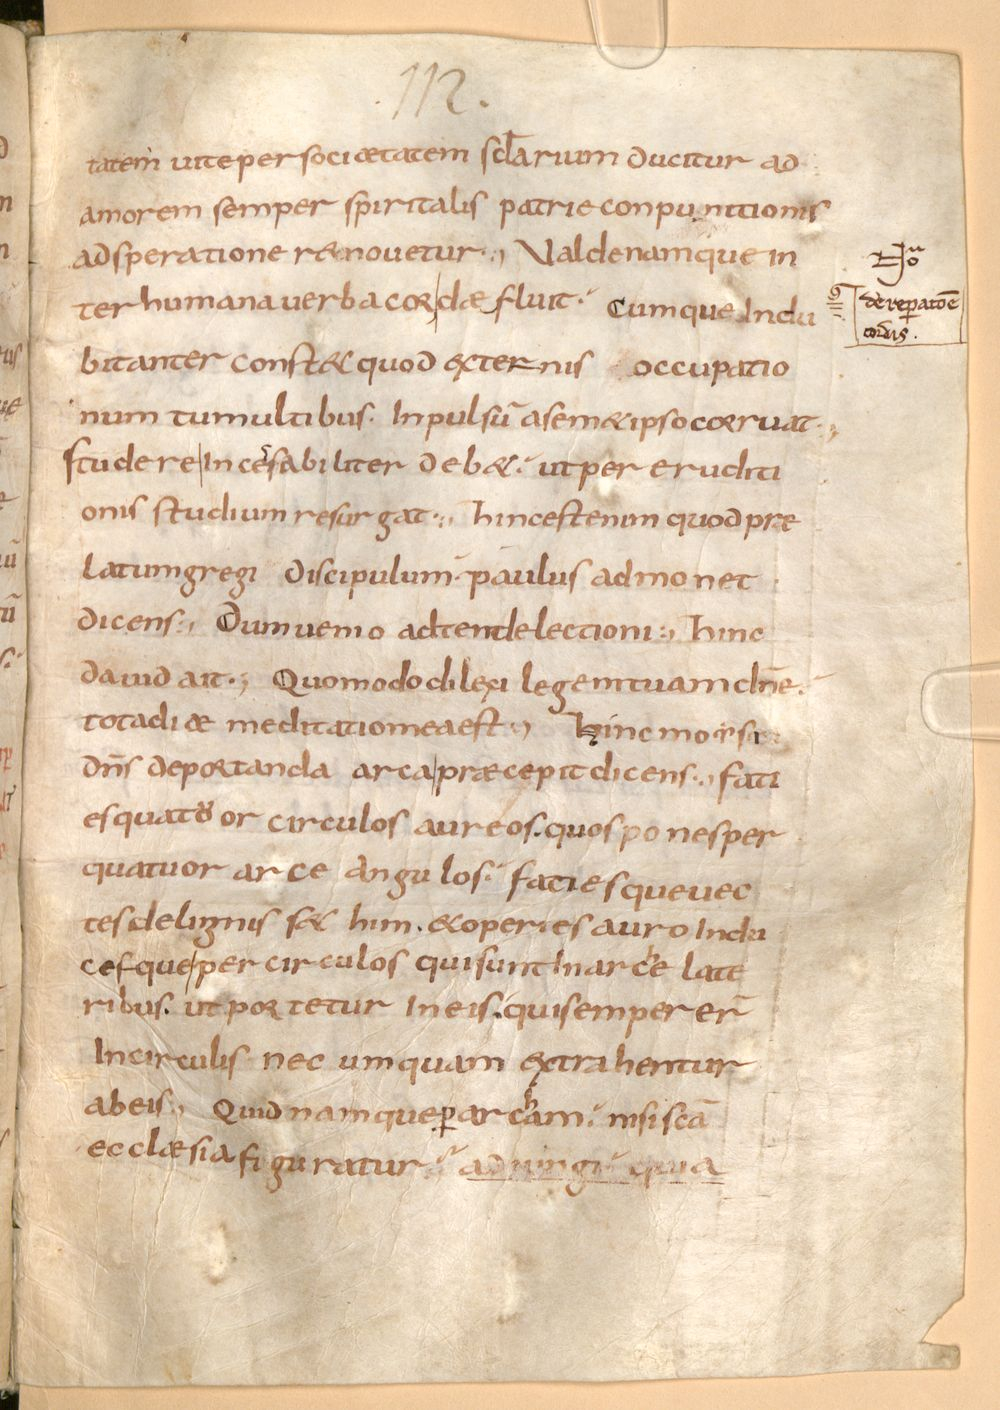 .112.
tatem uite per sociaetatem sc̄larium ducitur ad
amorem semper spiritalis patrie conpunitionis
adsperatione renovetur., Valde namque in
ter humana verba cordae fluit. Cumque indu
bitanter constet quod externis occupatio
num tumultibus. Inpulsū a semetipso corruat.,
studere incessabiliter debet. ut per eruditi
onis studium resurgat., hinc est enim quod prae
latum gregi discipulum. paulus admonet
dicens., Dum uenio adtende lectioni., hinc
dauid ait., Quomodo dilexi legem tuam dn̄e.
tota diae meditatio mea est., hinc moysi
dn̄s deportanda arca praecepit dicens., fati
es quatuor circulos aureos. quos pones per
quatuor arce angulos. facies que vec
tes de lignis set him. et operies auro indu
cesque per circulos qui sunt in arche late
ribus. ut portetur in eis. qui semper er̄
In circulis nec umquam extrahentur
ab eis., Quid namque per archam. nisi scā
ecclaesia figuratur. adiungi quia
Nō
de reparatōe
cordis.